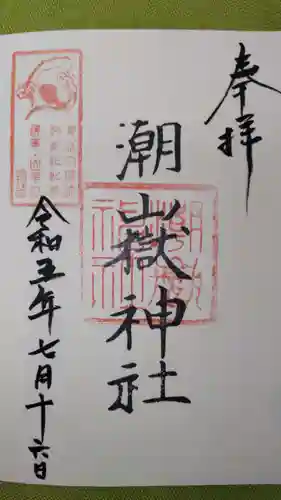 奉拝
潮嶽神社
令和五年七月十六日